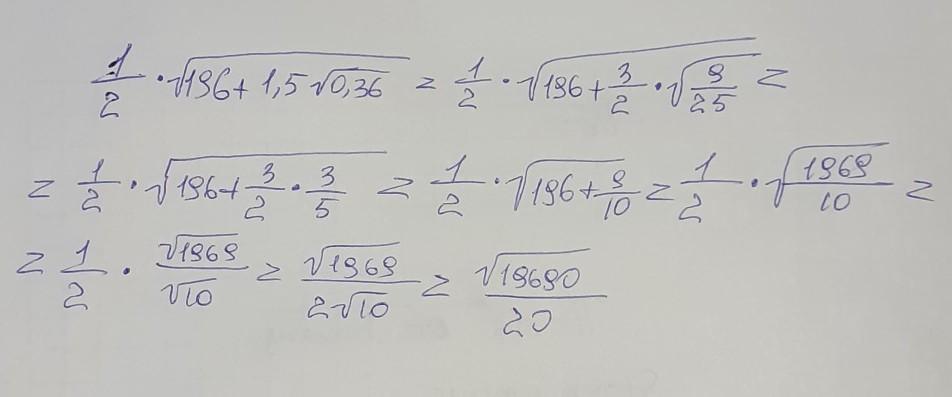 1/2 · √(196 + 1,5 √(0,36)) = 1/2 · √(196 + 3/2 · √(9/25)) =
= 1/2 · √(196 + 3/2 · 3/5) = 1/2 · √(196 + 9/10) = 1/2 · √(1969/10) =
= 1/2 · √1969/√10 = √1969/(2√10) = √19690/20